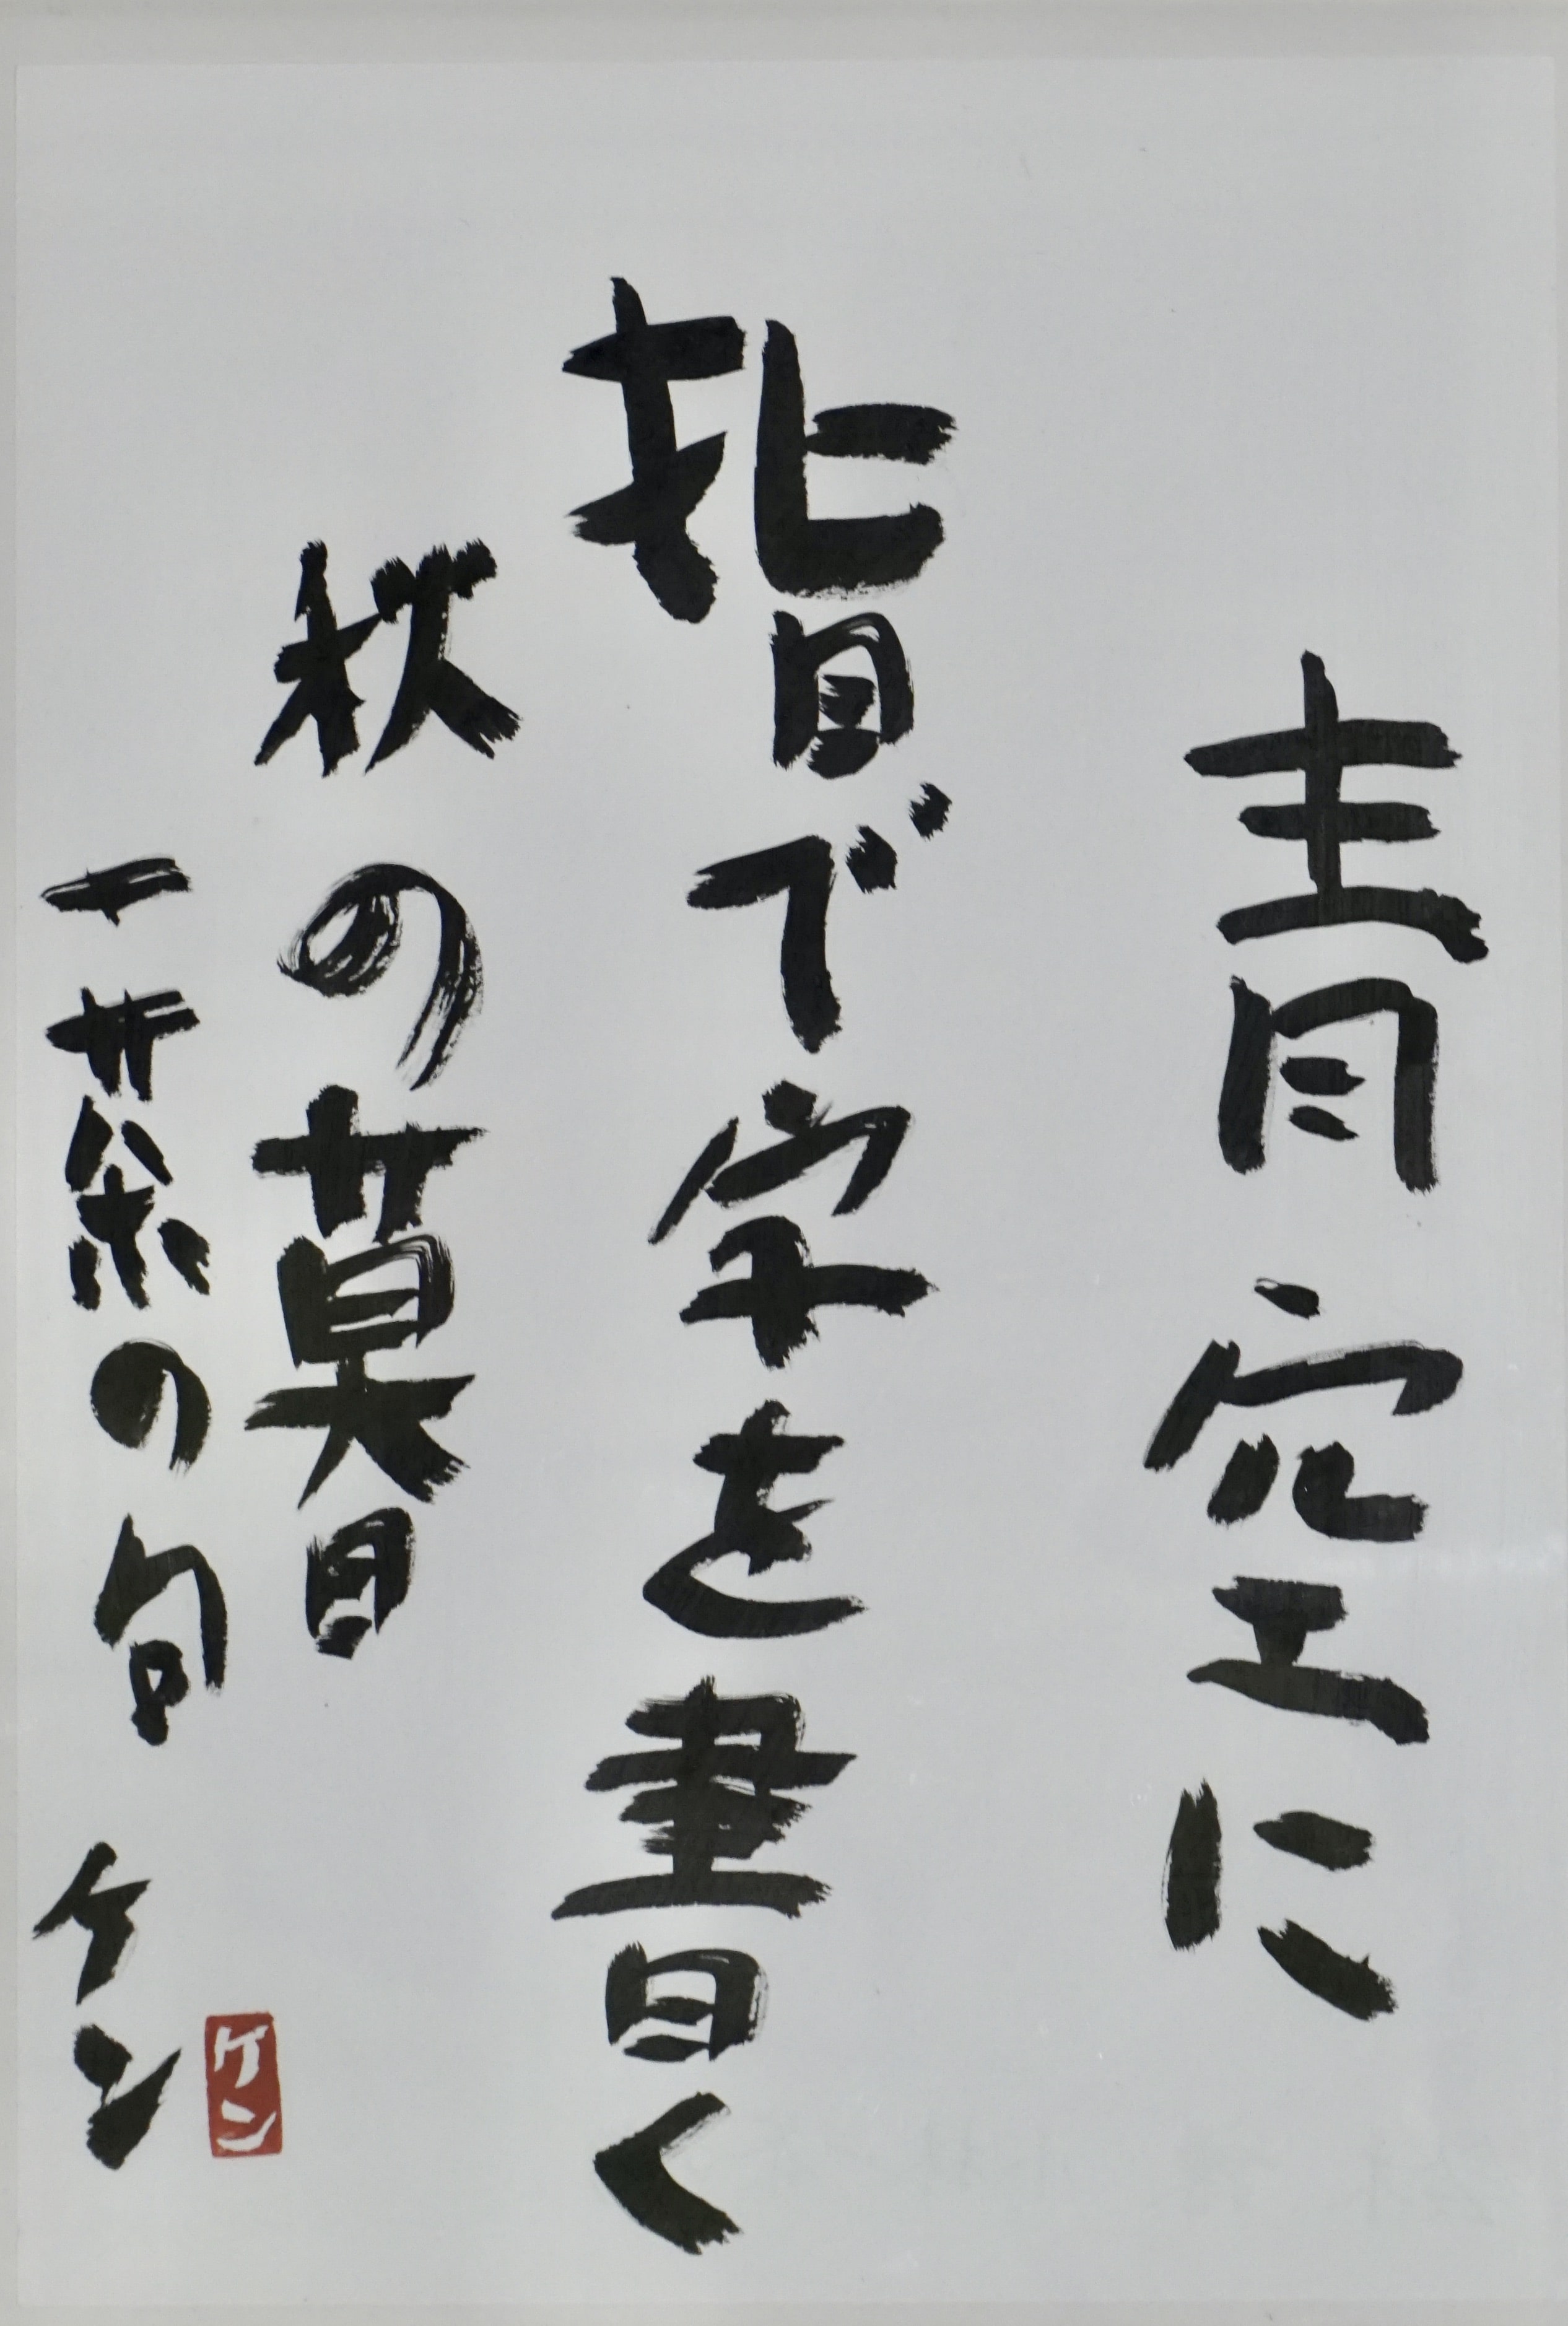 青空に
指で字を書く
秋の暮
一茶の句 ケン
ケン